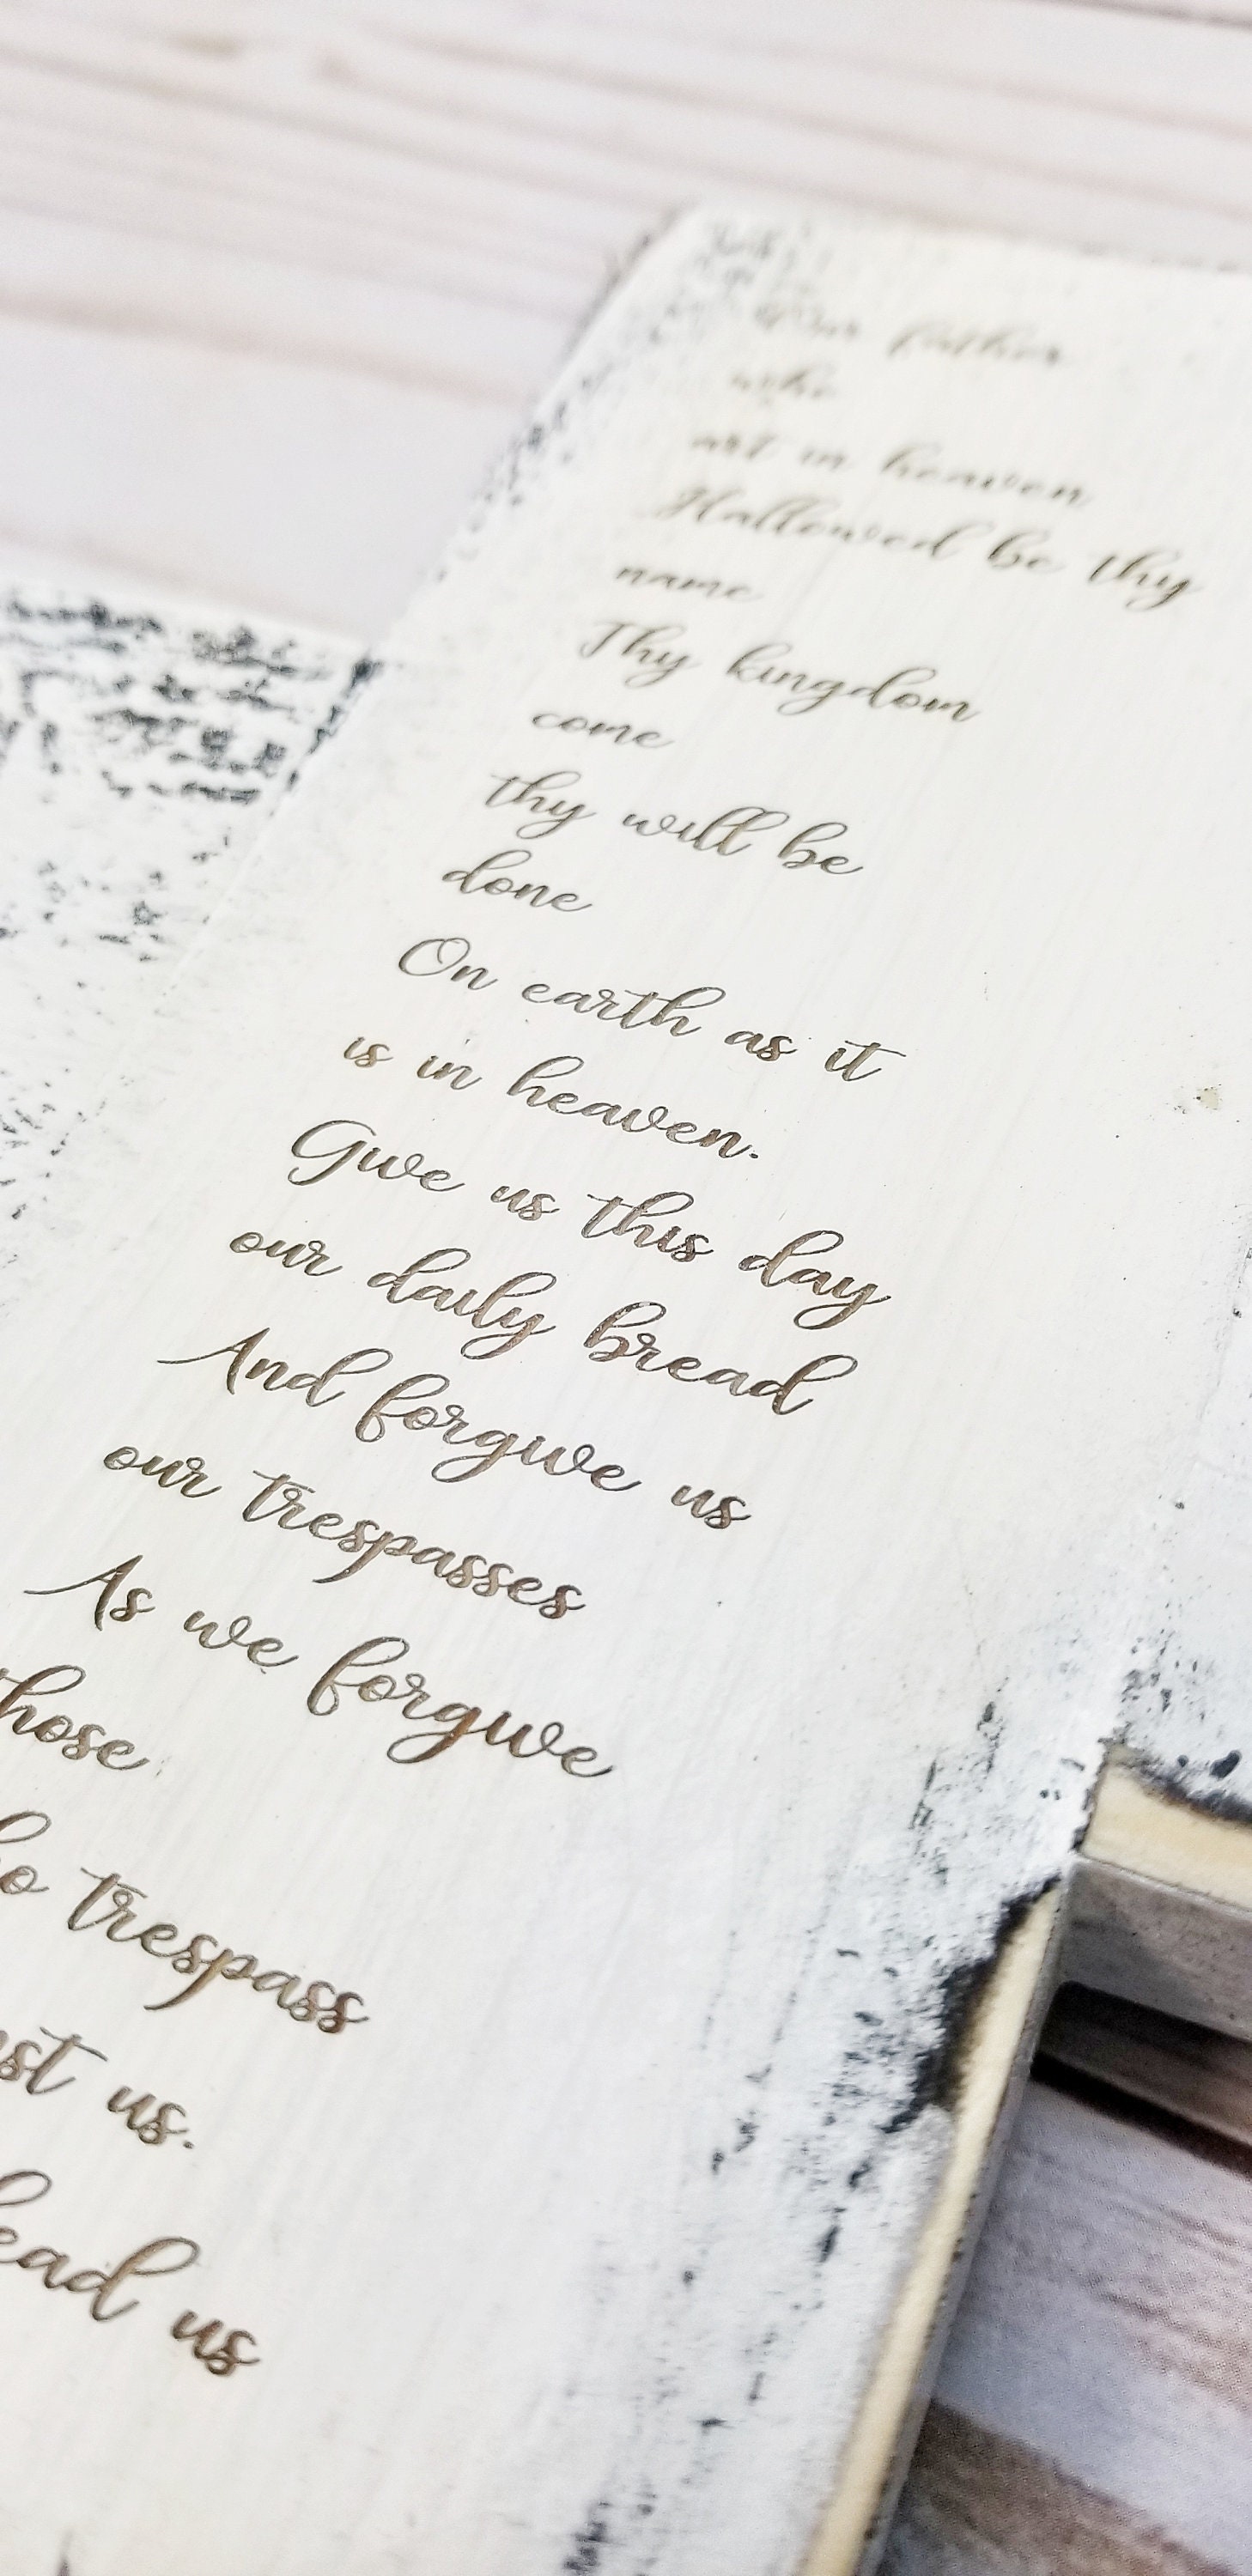 Our father
who
art in heaven
Hallowed be thy
name
Thy kingdom
come
thy will be
done
On earth as it
is in heaven.
Give us this day
our daily bread
And forgive us
our trespasses
As we forgive
those
trespass
us.
us